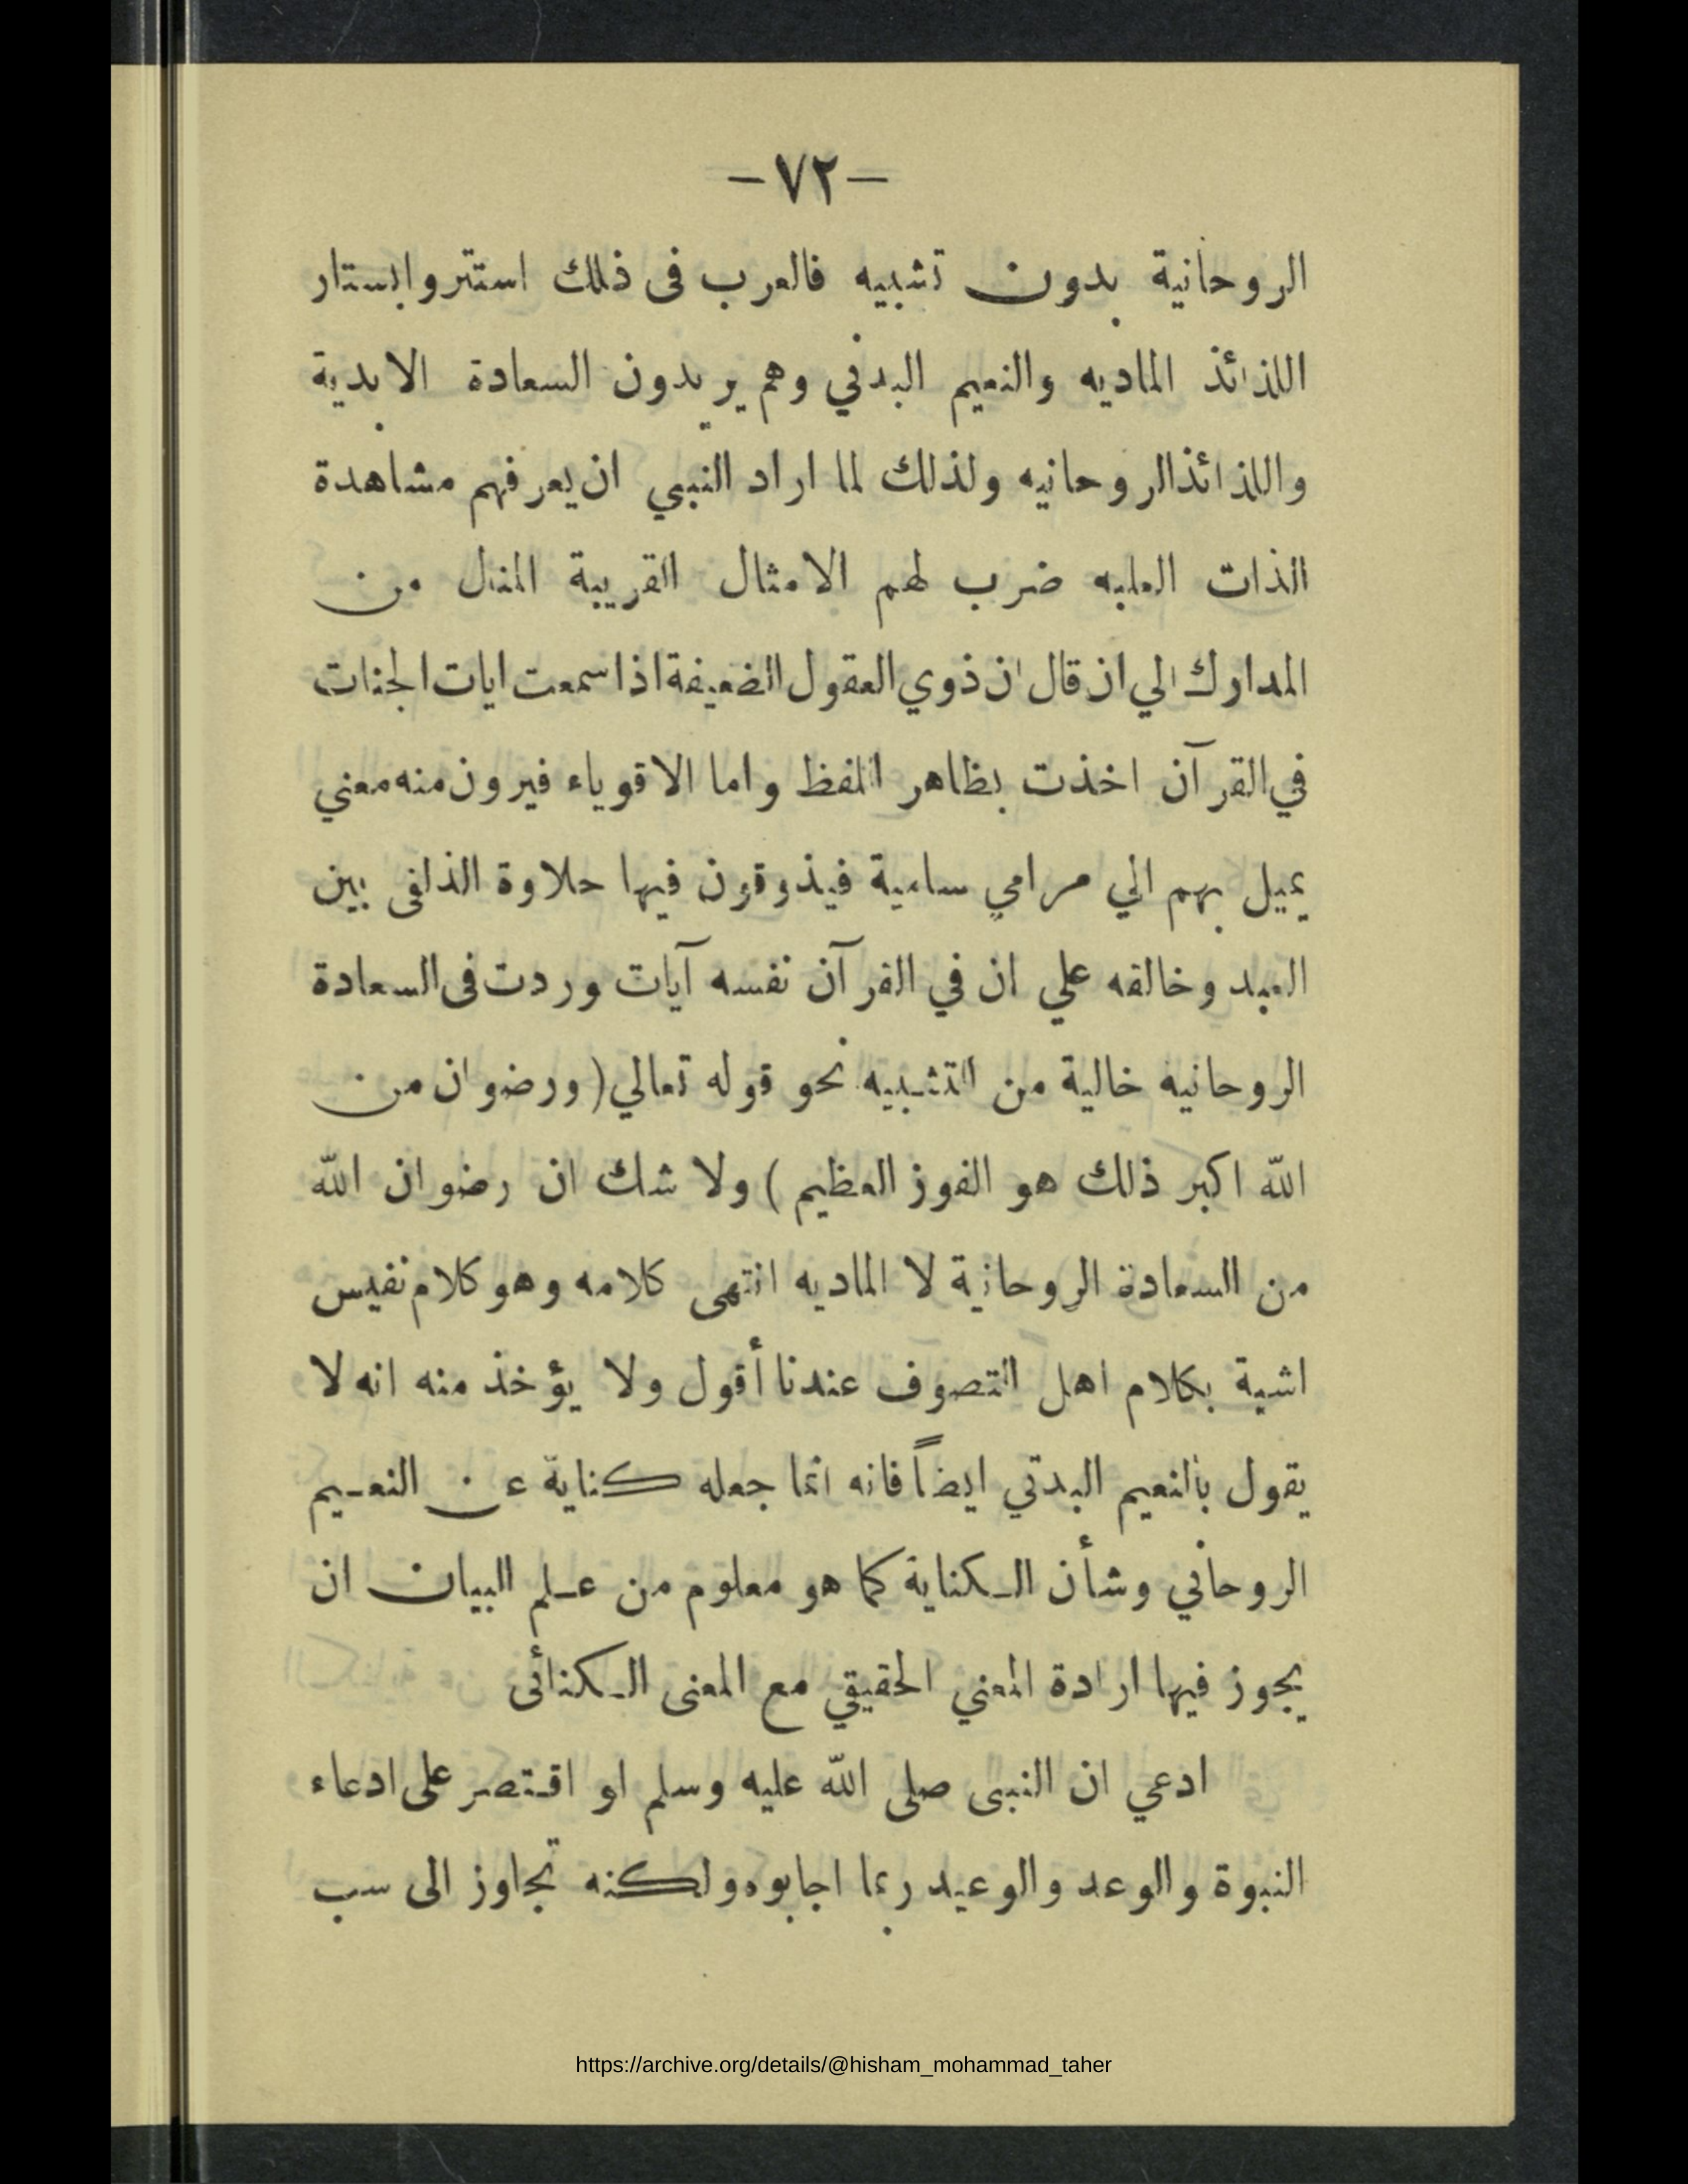 — ٧٢ —
الروحانية بدون تشبيه فالعرب فى ذلك استتروابستار
اللذائذ الماديه والنعيم البدني وهم يريدون السعادة الابدية
واللذائذالروحانيه ولذلك لما اراد النبي ان يعرفهم مشاهدة
الذات العليه ضرب لهم الامثال القريبة المنال من
المدارك الي ان قال ان ذوي العقول الضعيفة اذا سمعت ايات الجنات
في القرآن اخذت بظاهر اللفظ واما الاقوياء فيرون منه معني
يميل بهم الي مرامي سامية فيذوقون فيها حلاوة الذلفى بين
العبد وخالقه علي ان في القرآن نفسه آيات وردت فى السعادة
الروحانيه خالية من التشبيه نحو قوله تعالي (ورضوان من
الله اكبر ذلك هو الفوز العظيم) ولا شك ان رضوان الله
من السعادة الروحانية لا الماديه انتهى كلامه وهو كلام نفيس
اشية بكلام اهل التصوف عندنا أقول ولا يؤخذ منه انه لا
يقول بالنعيم البدتي ايضاً فانه انما جعله كناية عن النعيم
الروحاني وشأن الكناية كما هو معلوم من علم البيان ان
يجوز فيها ارادة المعني الحقيقي مع المعنى الكنائى
ادعي ان النبى صلى الله عليه وسلم او اقتصر على ادعاء
النبوة والوعد والوعيد ربما اجابوه ولكنه تجاوز الى سب
https://archive.org/details/@hisham_mohammad_taher